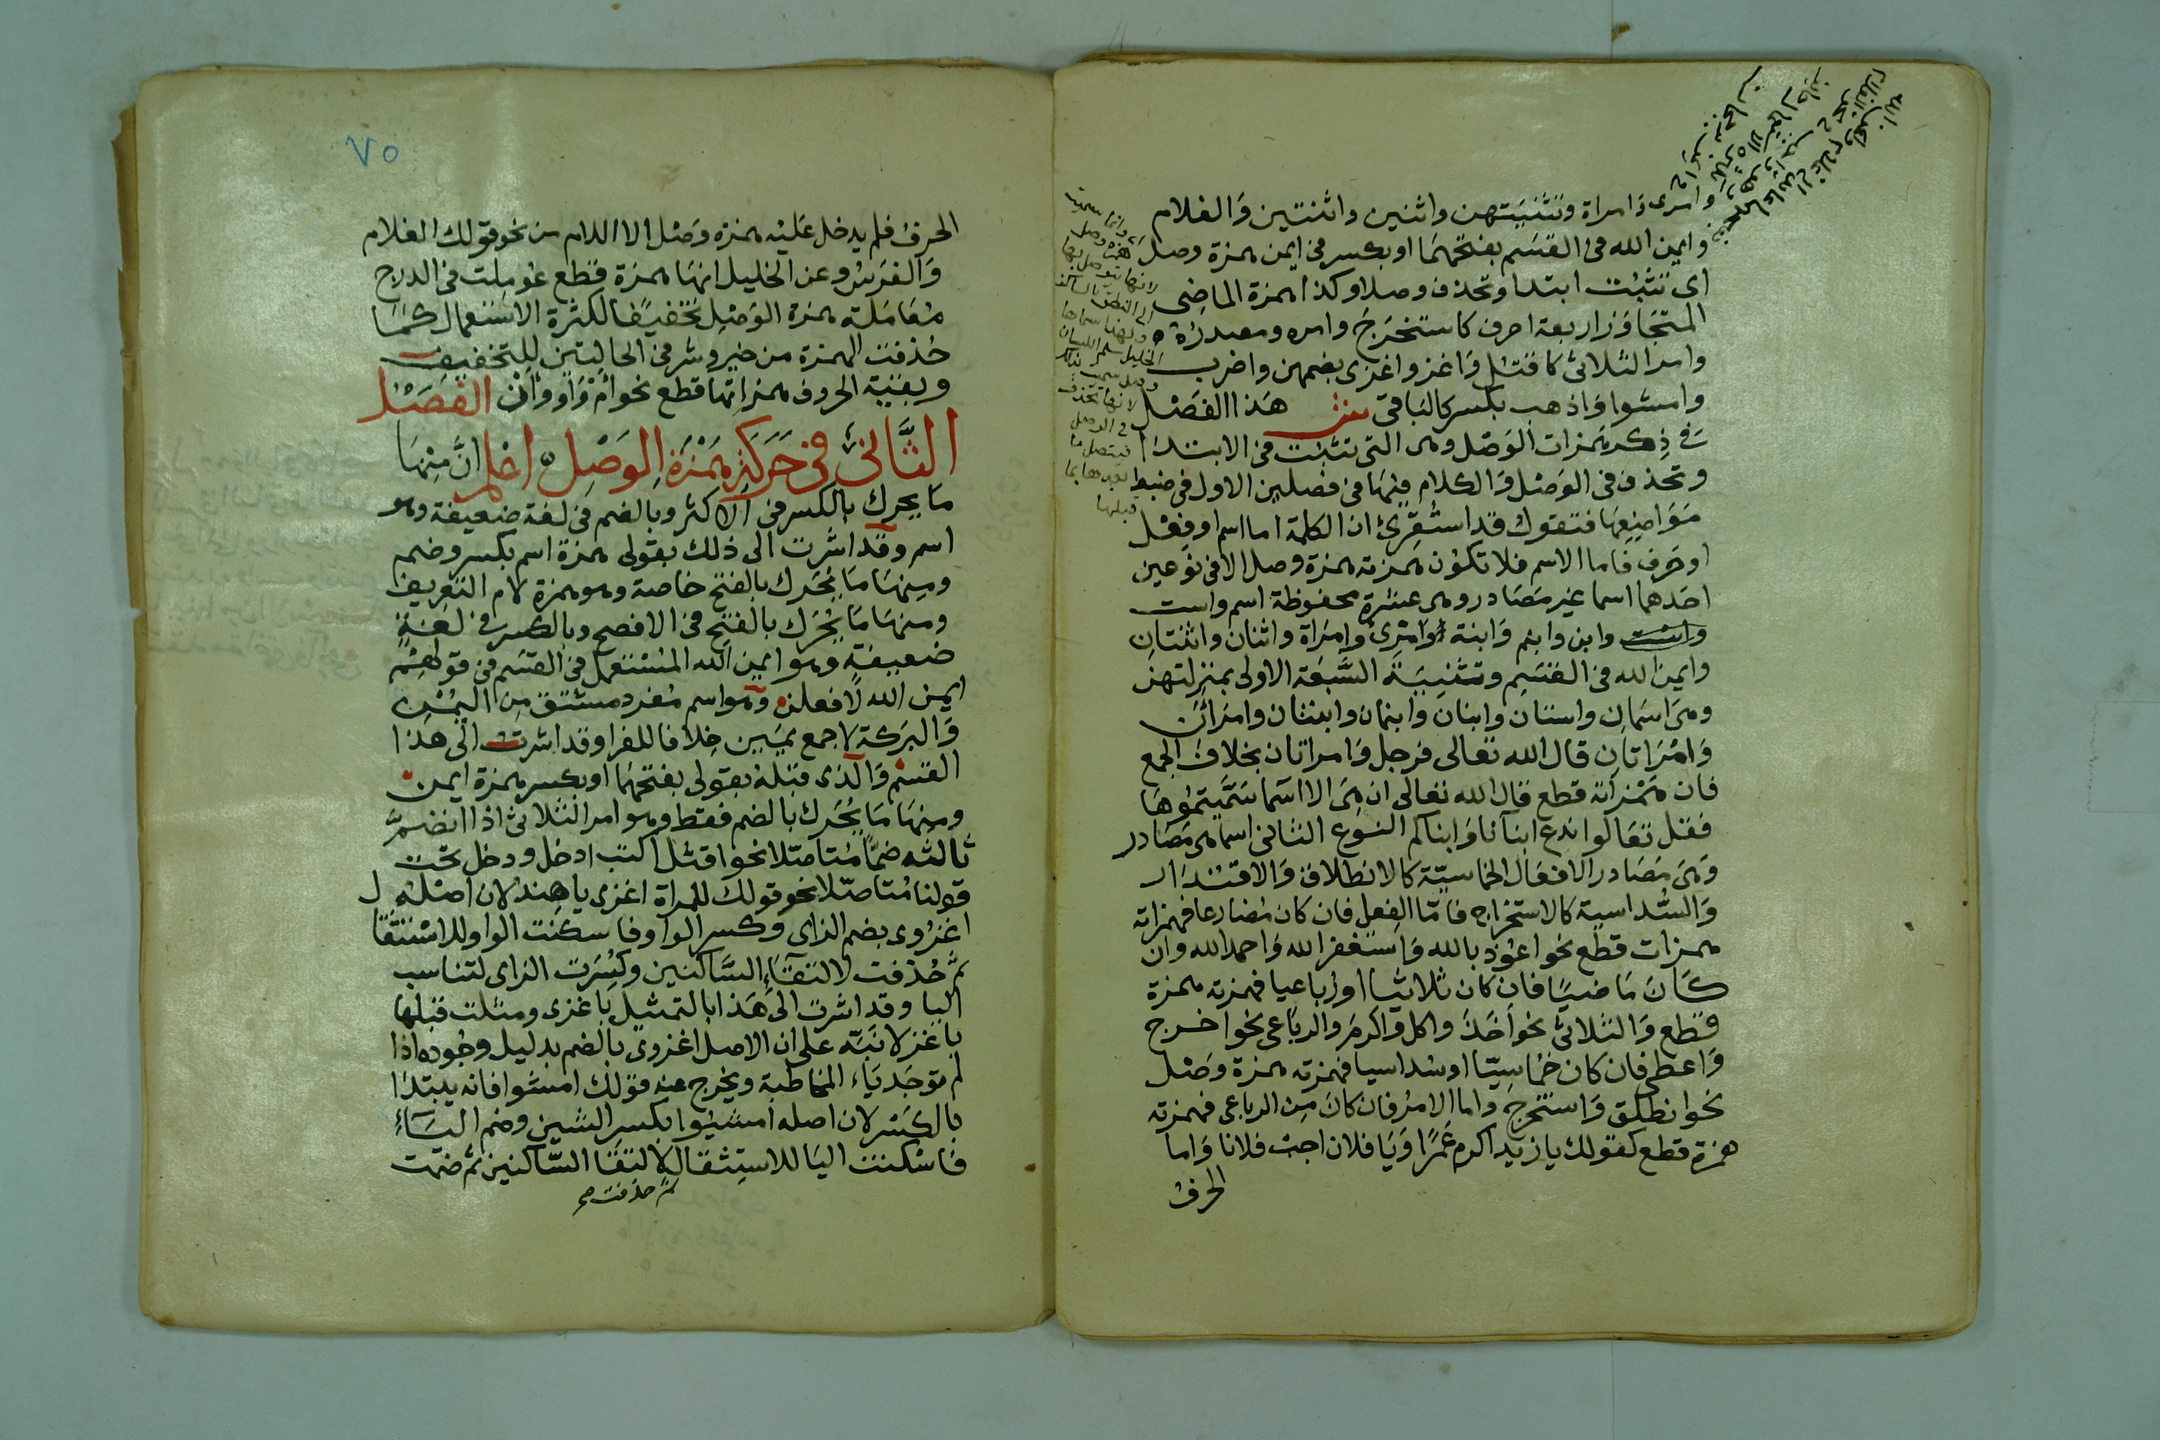 وامرئ وامراة وتثنيتهن واثنين واثنتين والغلام
وايمن الله في القسم بفتحهما او بكسر في ايمن همزة وصل
اى تثبت ابتدا وتحذف وصلا وكذا همزة الماضى
المتجاوز اربعة احرف كاستخرج وامره ومصدره
وامر الثلاثى كاقتل واغز واغزى بضمهن واضرب
وامشوا واذهب بكسر كالباقى ش هذا الفصل
فى ذكر همزات الوصل وهى التى تثبت فى الابتدا
وتحذف فى الوصل والكلام فيها فى فصلين الاول فى ضبط
مواضعها فتقول قد استقرئ ان الكلمة اما اسم او فعل
او حرف فاما الاسم فلا تكون همزته همزة وصل الا فى نوعين
احدهما اسما غير مصادر وهى عشرة محفوظة اسم واست
وابن وابنم وابنة وامرئ وامراة واثنان واثنتان
وايمن الله فى القسم وتثنية السبعة الاولى بمنزلتهن
وهى اسمان واستان وابنان وابنمان وابنتان وامرائن
وامراتان قال الله تعالى فرجل وامراتان بخلاف الجمع
فان همزاته قطع قال الله تعالى ان هى الا اسما سميتموها
فقل تعالوا ندع ابنآنا وابناكم النوع الثانى اسما هى مصادر
وهى مصادر الافعال الخماسية كالانطلاق والاقتدار
والسداسية كالاستخراج فاما الفعل فان كان مضارعا فهمزاته
همزات قطع نحو اعوذ بالله واستغفر الله واحمد الله وان
كان ماضيا فان كان ثلاثيا او رباعيا فهمزته همزة
قطع والثلاثى نحو اخذ واكل واكرم والرباعى نحو اخرج
واعطى فان كان خماسيا او سداسيا فهمزته همزة وصل
نحو انطلق واستخرج واما الامر فان كان من الرباعى فهمزته
همزة قطع كقولك يا زيد اكرم عمرا ويا فلان اجب فلانا واما
الحرف
وانما سميت
همزة وصل
لانها يتوصل بها
الى النطق بالساكن
ولهذا سماها
الخليل سلم اللسان
وقيل سميت بذلك
لانها تحذف
فى الوصل
فيتصل ما
بعدها بما
قبلها
٧٥
الحرف فلم يدخل عليه همزة وصل الا اللام من نحو قولك الغلام
والفرس وعن الخليل انها همزة قطع عوملت فى الدرج
معاملة همزة الوصل تخفيفا لكثرة الاستعمال كما
حذفت الهمزة من خير وشر فى الحالتين للتخفيف
وبقية الحروف همزاتها قطع نحو ام واو وان الفصل
الثانى فى حركة همزة الوصل اعلم ان منها
ما يحرك بالكسر فى الاكثر وبالضم فى لغة ضعيفة وهو
اسم وقد اشرت الى ذلك بقولى همزة اسم بكسر وضم
ومنها ما يحرك بالفتح خاصة وهو همزة لام التعريف
ومنها ما يحرك بالفتح فى الافصح وبالكسر فى لغة
ضعيفة وهو ايمن الله المستعمل فى القسم فى قولهم
ايمن الله لافعلن وهو اسم مفرد مشتق من اليمن
والبركة لا جمع يمين خلافا للفرا وقد اشرت الى هذا
القسم والذى قبله بقولى بفتحهما او بكسر همزة ايمن
ومنها ما يحرك بالضم فقط وهو امر الثلاثى اذا انضم
ثالثه ضما متاصلا نحو اقتل اكتب ادخل ودخل تحت
قولنا متاصلا نحو قولك للمراة اغزى يا هند لان اصله
اغزوى بضم الزاى وكسر الواو فاسكنت الواو للاستثقا
ل
ثم حذفت لالتقآء الساكنين وكسرت الزاى لتناسب
اليا وقد اشرت الى هذا بالتمثيل باغزى ومثلت قبلها
باغز لانبه على ان الاصل اغزوى بالضم بدليل وجوده اذا
لم توجد ياء المخاطبة ويخرج عنه قولك امشوا فانه يبتدا
بالكسر لان اصله امشيوا بكسر الشين وضم الياء
فاسكنت اليا للاستثقال لالتقا الساكنين ثم ضمت
ثم حذفت صح